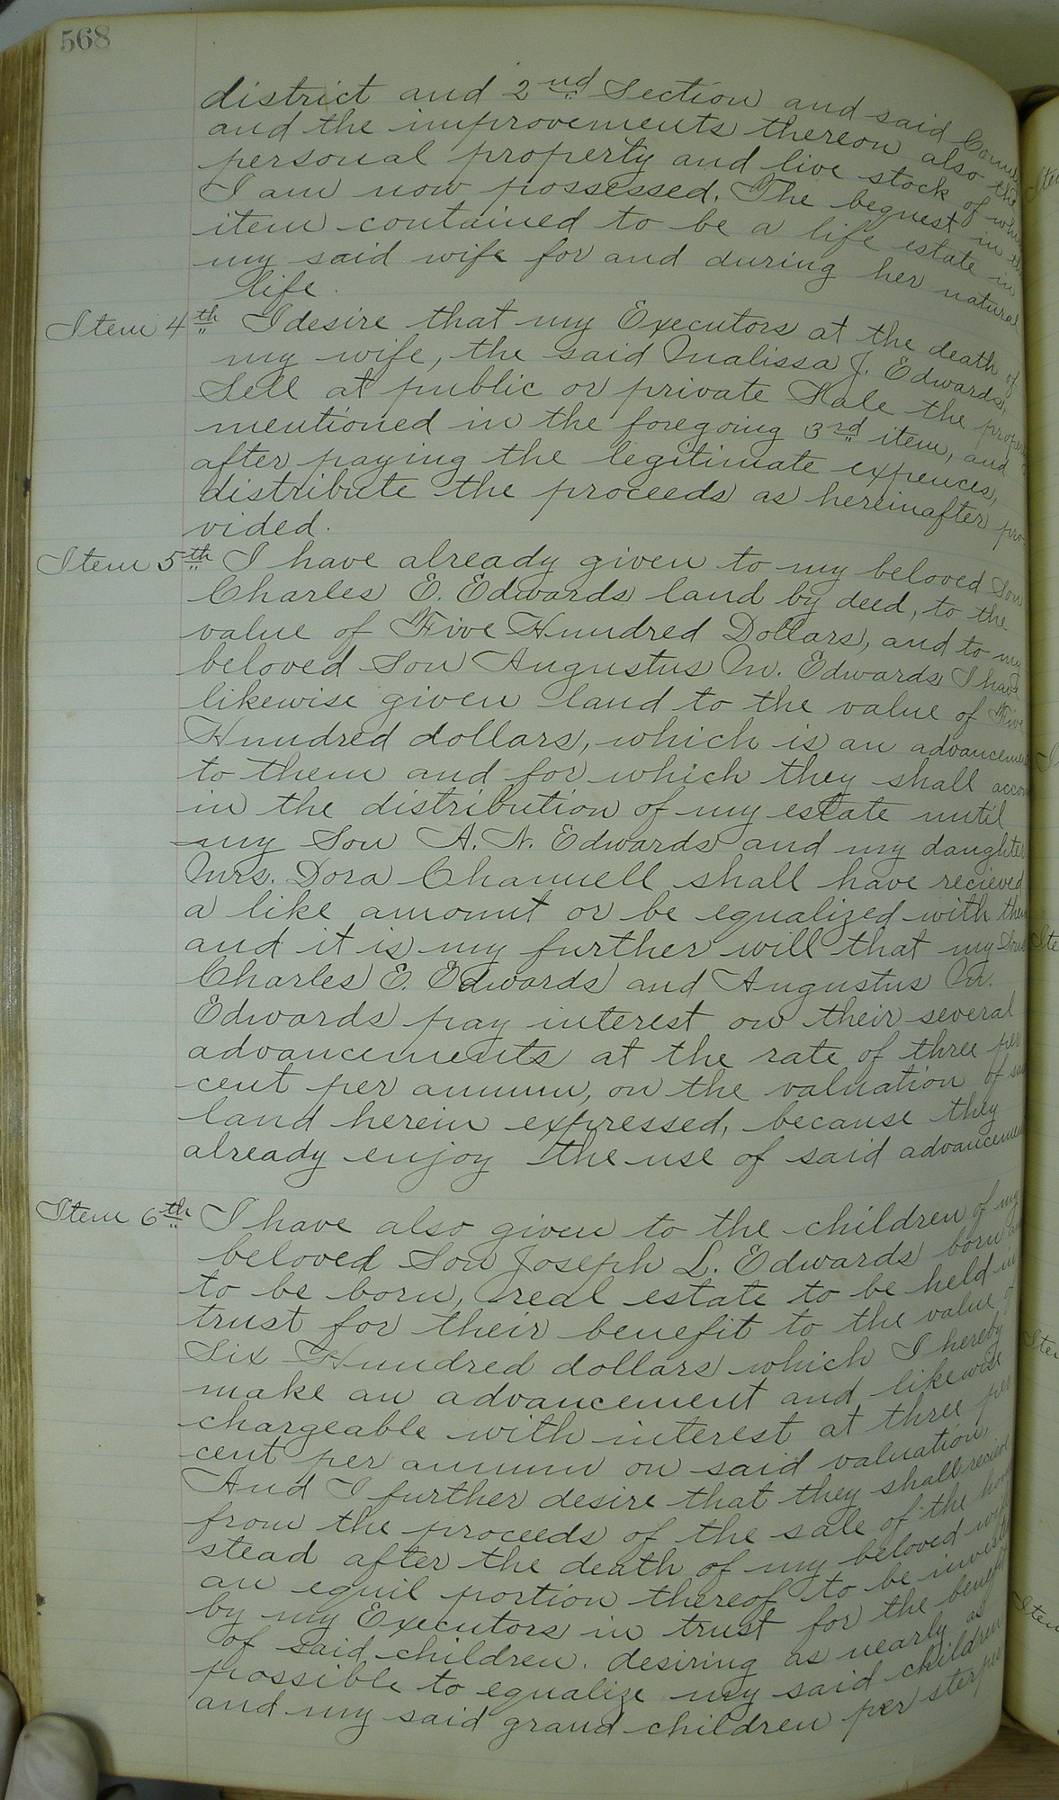 568
district and 2nd Section and said
and the improvements thereon also the
personal property and live stock of
I am now possessed. The bequest in
item contained to be a life estate in
my said wife for and during her natural
life.
Item 4th I desire that my Executors at the death of
my wife, the said Malissa J. Edwards,
Sell at public or private Sale the
mentioned in the foregoing 3rd item, and
after paying the legitimate expences,
distribute the proceeds as hereinafter pro-
vided.
Item 5th I have already given to my beloved Son
Charles E. Edwards land by deed, to the
value of Five Hundred Dollars, and to my
beloved Son Augustus M. Edwards I have
likewise given land to the value of Five
Hundred dollars, which is an advancement
to them and for which they shall
in the distribution of my estate until
my Son A. N. Edwards and my daughter
Mrs. Dora Channell shall have recieved
a like amount or be equalized with them
and it is my further will that my Sons
Charles E. Edwards and Augustus M.
Edwards pay interest on their several
advancements at the rate of three per
cent per annum, on the valuation of
land herein expressed, because they
already enjoy the use of said
Item 6th I have also given to the children of my
beloved Son Joseph L. Edwards born
to be born, real estate to be held in
trust for their benefit to the value of
Six Hundred dollars which I hereby
make an advancement and likewise
chargeable with interest at three per
cent per annum on said valuation,
And I further desire that they shall
from the proceeds of the sale of the
stead after the death of my beloved wife
an equil portion thereof to be
by my Executors in trust for the benefit
of said children. desiring as nearly as
possible to equalize my said children
and my said grand children per